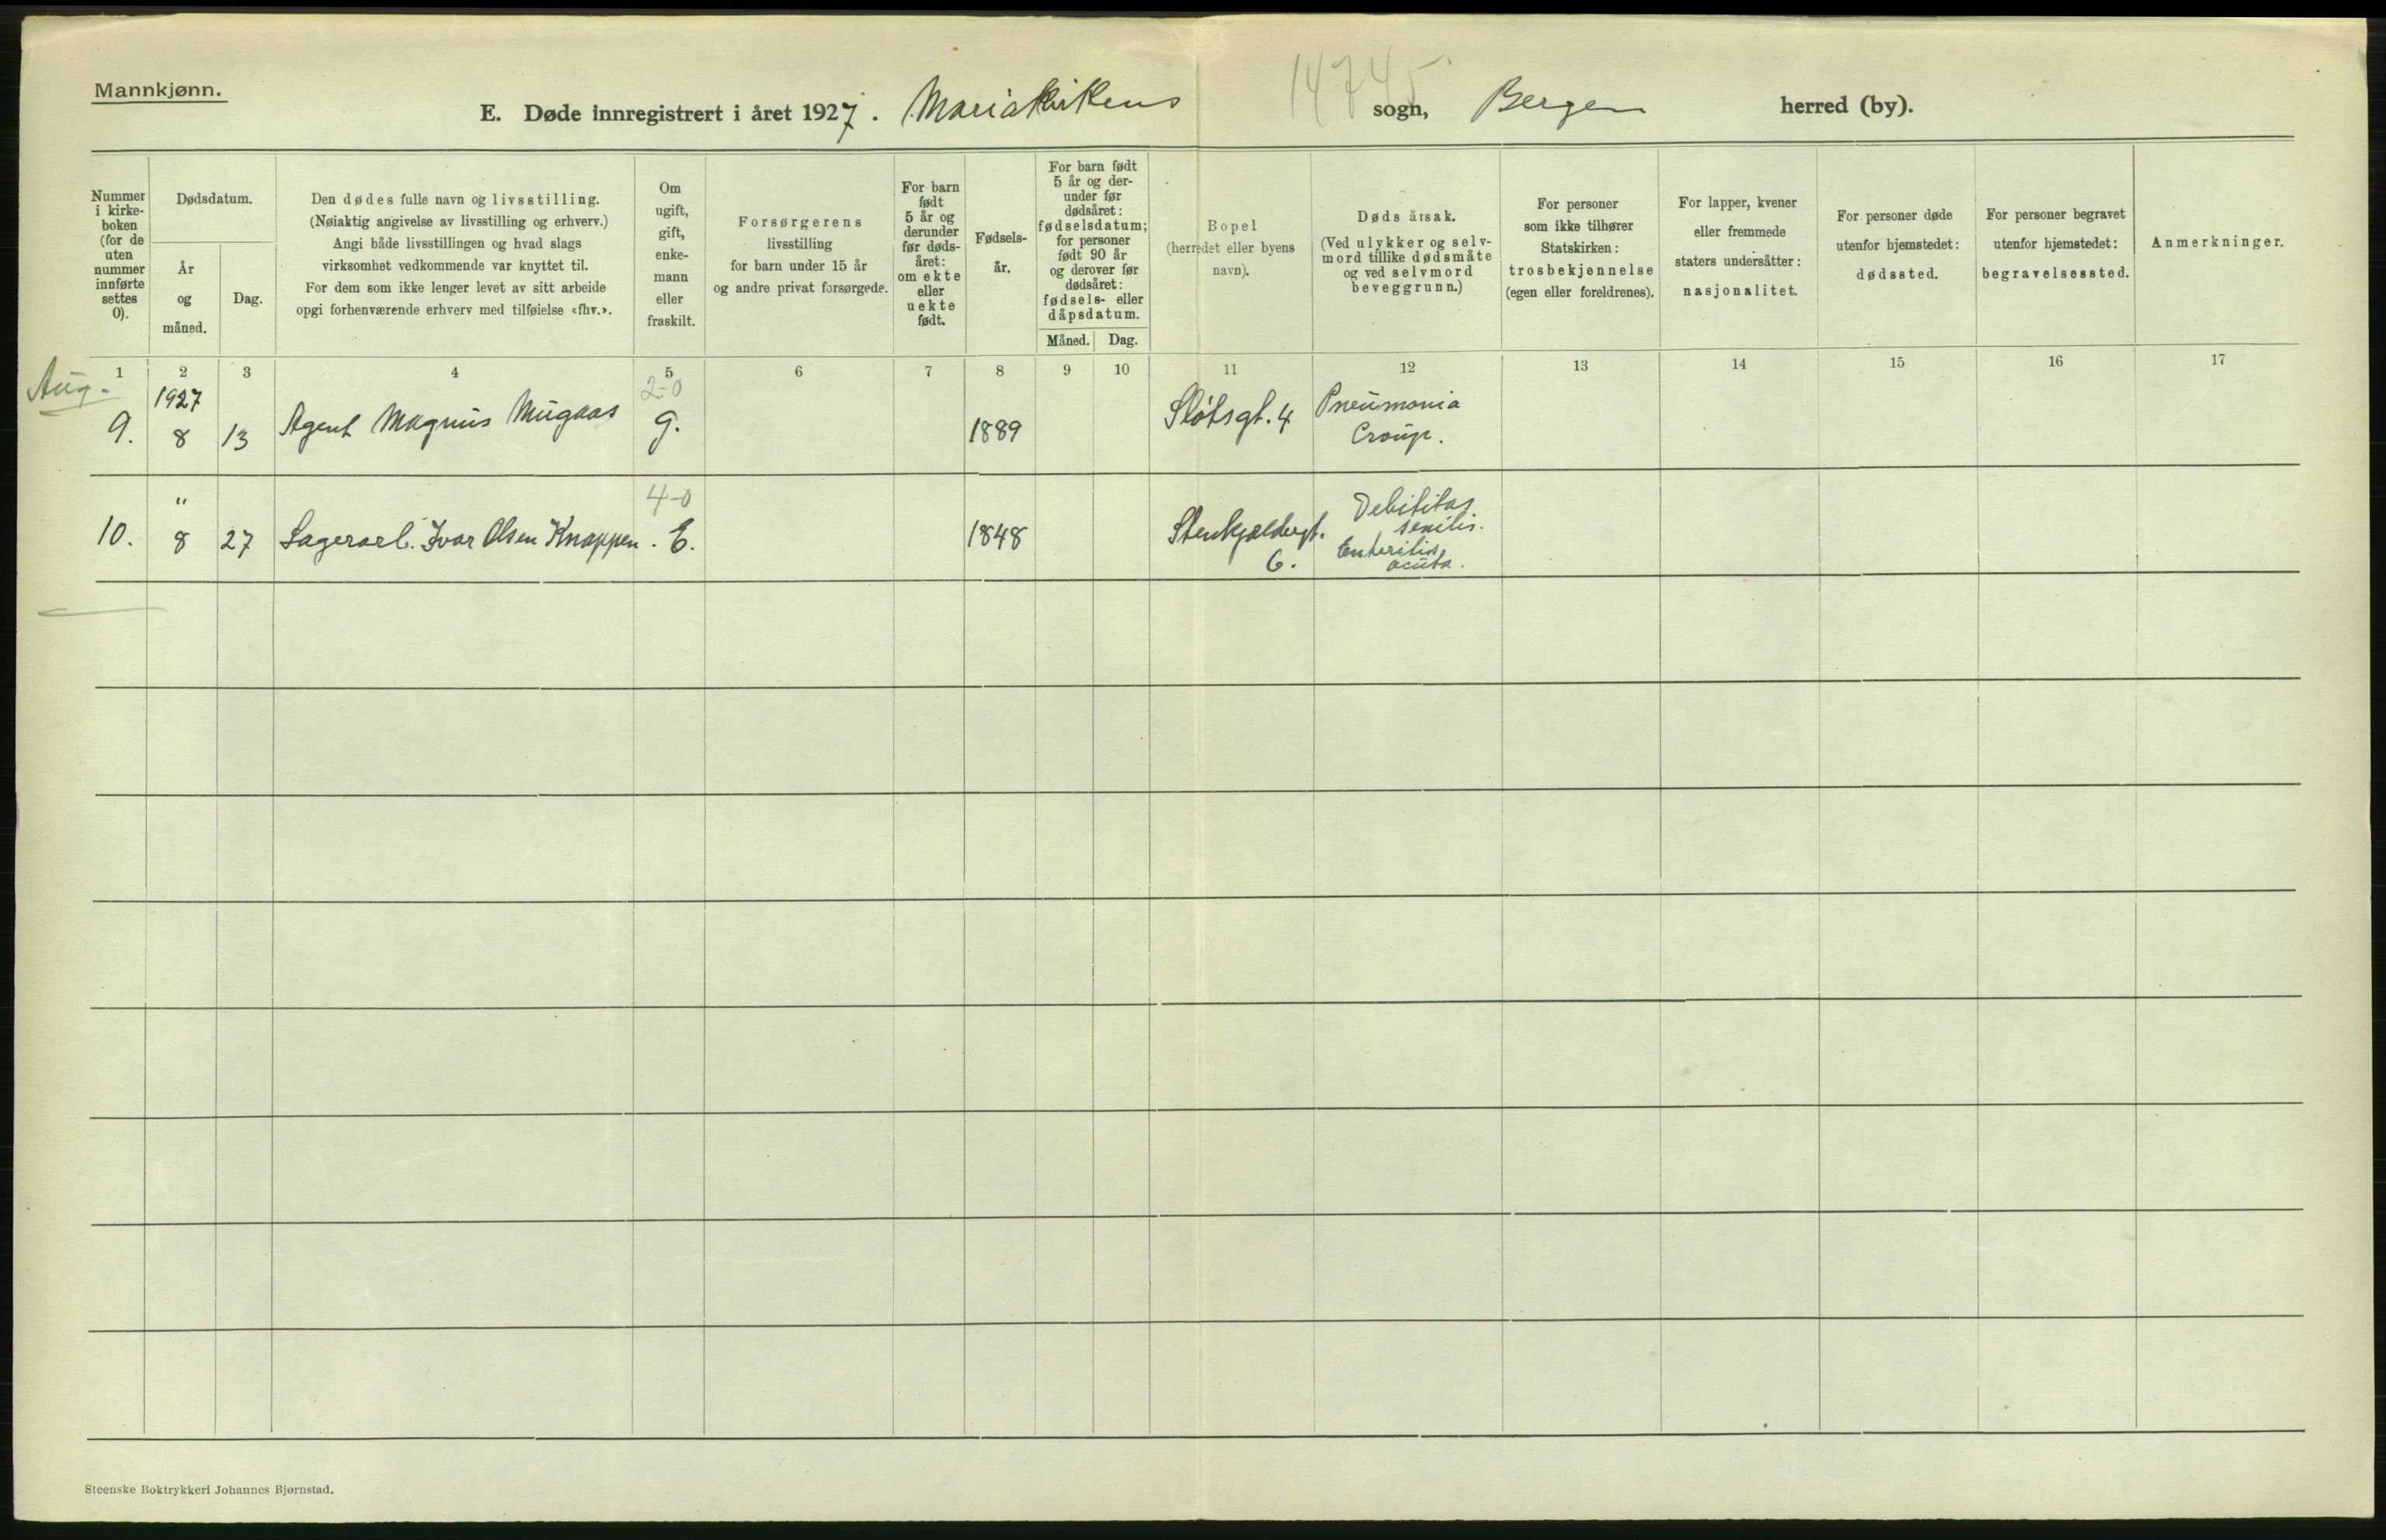 Mannkjønn.
14745
E. Døde innregistrert i året 1927. Mariakirkens sogn, Bergen herred (by).
Nummer
i kirke-
boken
(for de
uten
nummer
innførte
settes
0).
Dødsdatum.
År
og
måned.
Dag.
Den dødes fulle navn og livsstilling.
(Nøiaktig angivelse av livsstilling og erhverv.)
Angi både livsstillingen og hvad slags
virksomhet vedkommende var knyttet til.
For dem som ikke lenger levet av sitt arbeide
opgi forhenværende erhverv med tilføielse «fhv.».
Om
ugift,
gift,
enke-
mann
eller
fraskilt.
Forsørgerens
livsstilling
for barn under 15 år
og andre privat forsørgede.
For barn
født
5 år og
derunder
før døds-
året:
om ekte
eller
uekte
født.
Fødsels-
år.
For barn født
5 år og der-
under før
dødsåret:
fødselsdatum;
for personer
født 90 år
og derover før
dødsåret:
fødsels- eller
dåpsdatum.
Måned. Dag.
Bopel
(herredet eller byens
navn).
Døds årsak.
(Ved ulykker og selv-
mord tillike dødsmåte
og ved selvmord
beveggrunn.)
For personer
som ikke tilhører
Statskirken:
trosbekjennelse
(egen eller foreldrenes).
For lapper, kvener
eller fremmede
staters undersåtter:
nasjonalitet.
For personer døde
utenfor hjemstedet:
dødssted.
For personer begravet
utenfor hjemstedet:
begravelsessted.
Anmerkninger.
1 2 3 4 5 6 7 8 9 10 11 12 13 14 15 16 17
Aug.
1927 2-0
9. 8 13 Agent Magnus Mugaas g. 1889 Slotsgt. 4 Pneumonia
Croup.
" 4-0
10. 8 27 Lagerarb. Ivar Olsen Knappen. E. 1848 Stenkjeldergt.
6.
Debilitas
senilis.
Enteritis
acuta.
Steenske Boktrykkeri Johannes Bjørnstad.